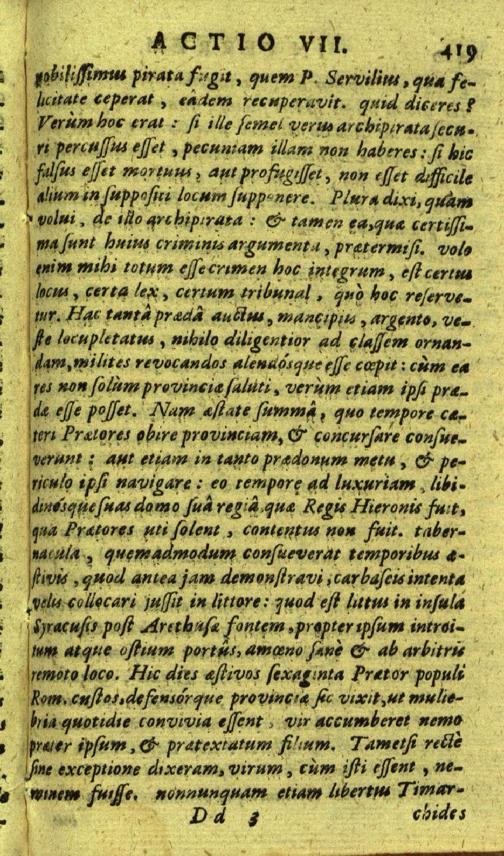 ACTIO VII. 419
nobilissimus pirata fugit, quem P. Servilius, qua fe-
licitate ceperat, eâdem recuperavit. quid diceres?
Verùm hoc erat: si ille semel verus archipirata secu-
ri percussus esset, pecuniam illam non haberes: si hic
falsus esset mortuus, aut profugisset, non esset difficile
alium in suppositi locum supponere. Plura dixi, quàm
volui, de illo archipirata: & tamen ea, quæ certissi-
ma sunt huius criminis argumenta, prætermisi. volo
enim mihi totum esse crimen hoc integrum, est certus
locus, certa lex, certum tribunal, quò hoc reserve-
tur. Hac tantâ prædâ auctus, mancipiis, argento, ve-
ste locupletatus, nihilo diligentior ad classem ornan-
dam, milites revocandos alendósque esse cœpit: cùm ea
res non solùm provinciæ saluti, verùm etiam ipsi præ-
dæ esse posset. Nam æstate summâ, quo tempore cæ-
teri Prætores obire provinciam, & concursare consue-
verunt: aut etiam in tanto prædonum metu, & pe-
riculo ipsi navigare: eo tempore ad luxuriam, libi-
dinésque suas domo suâ regiâ quæ Regis Hieronis fuit,
qua Prætores uti solent, contentus non fuit. taber-
nacula, quemadmodum consueverat temporibus æ-
stivis, quod antea jam demonstravi, carbaseis intenta
velis collocari jussit in littore: quod est littus in insulâ
Syracusis post Arethusæ fontem, propter ipsum introi-
tum atque ostium portûs, amœno sanè & ab arbitris
remoto loco. Hic dies æstivos sexaginta Prætor populi
Rom. custos, defensórque provinciæ sic vixit, ut mulie-
bria quotidie convivia essent, vir accumberet nemo
præter ipsum, & prætextatum filium. Tametsi rectè
sine exceptione dixeram, virum, cùm isti essent, ne-
minem fuisse. nonnunquam etiam libertus Timar-
Dd 3 chides